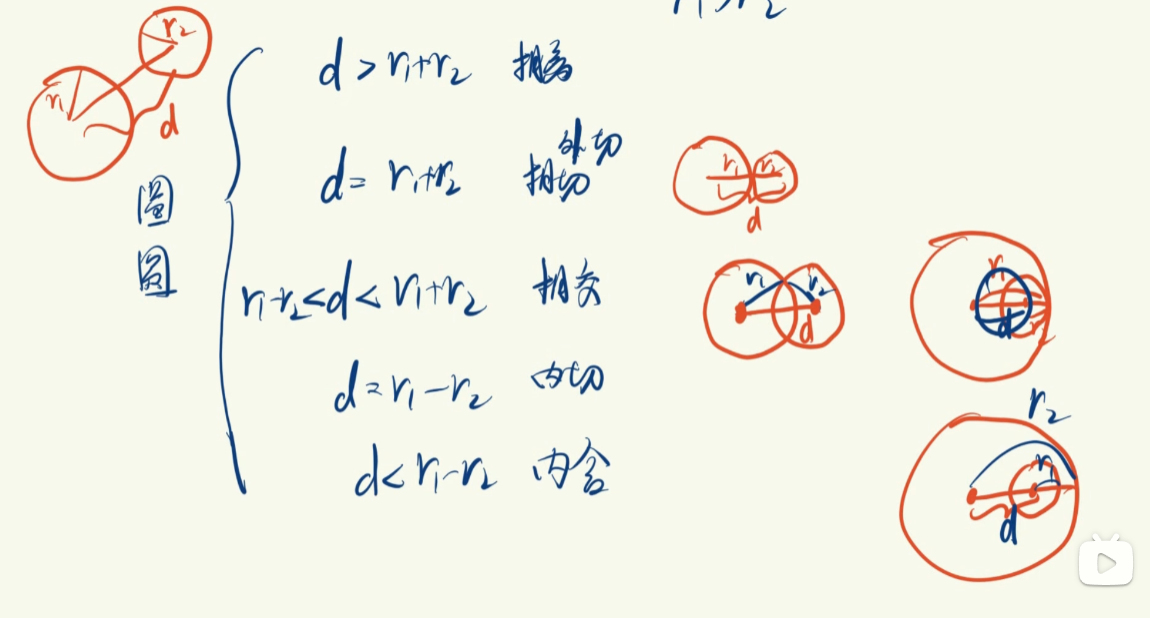 r₁>r₂
d>r₁+r₂ 相离
d=r₁+r₂ 相切 外切
圆
圆
r₁-r₂<d<r₁+r₂ 相交
d=r₁-r₂ 内切
d<r₁-r₂ 内含
r₂
r₁
d
r₁ r₂
d
r₁ r₂
d
r₁
d
r₂
r₁
d